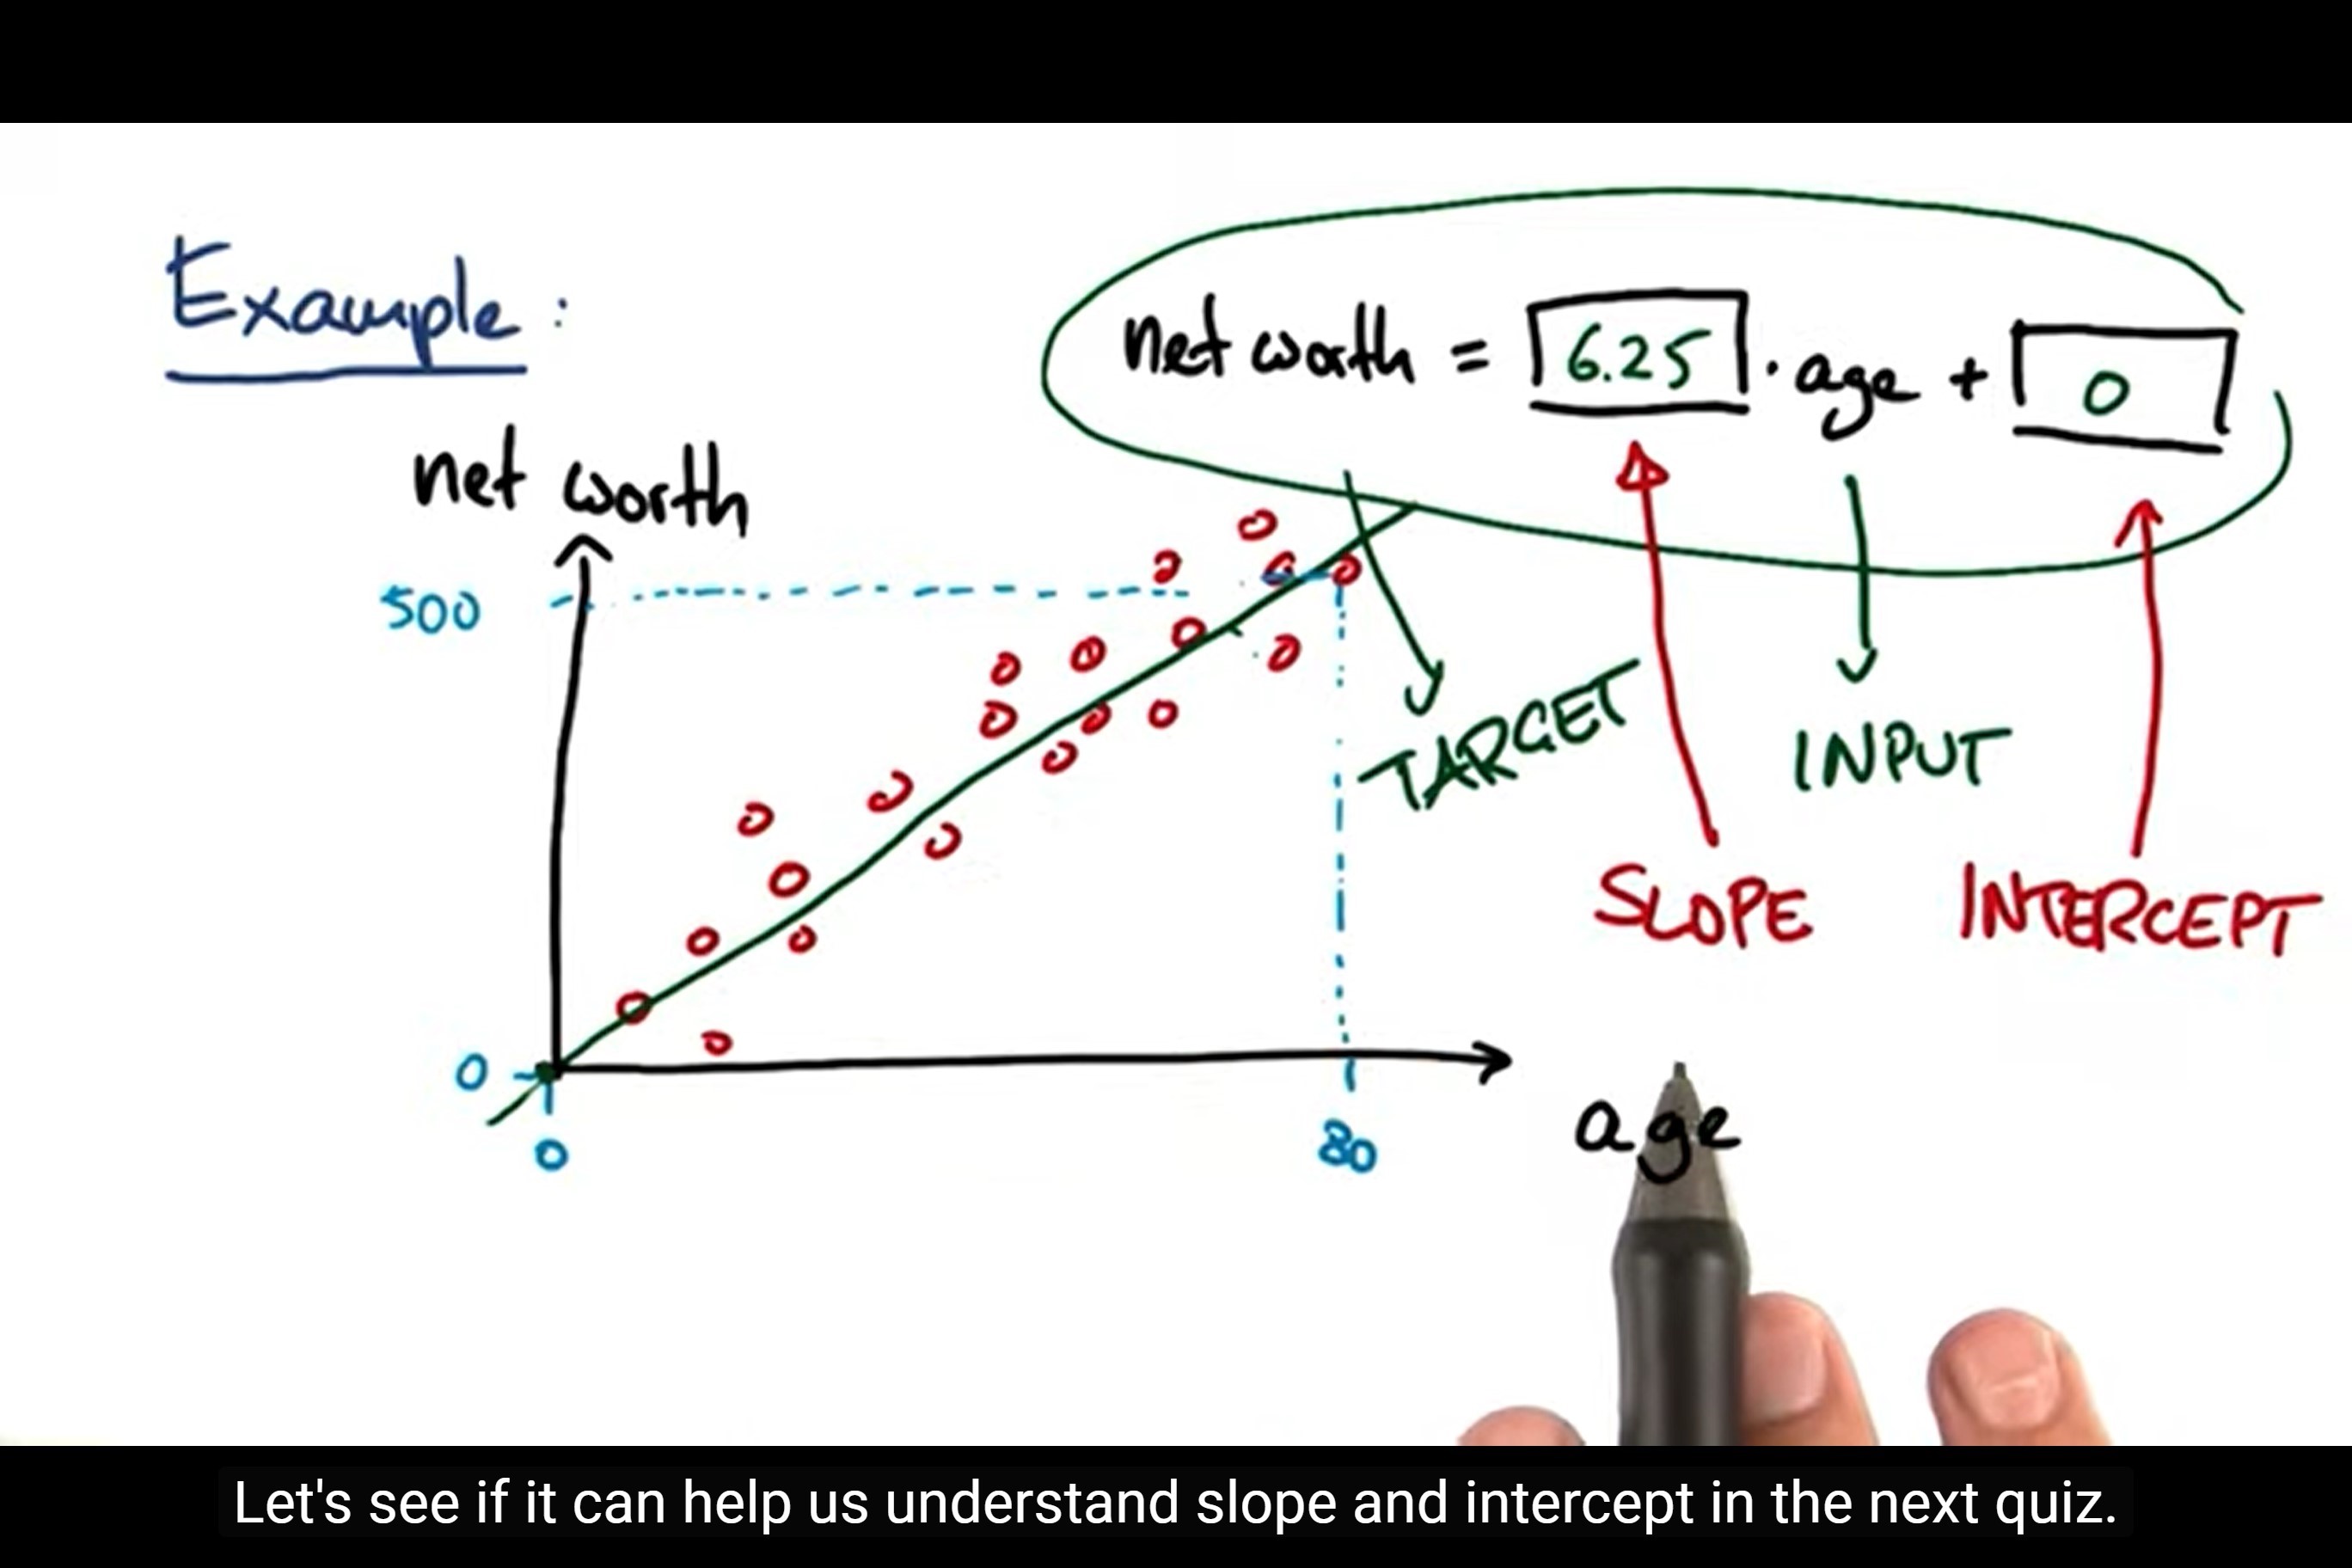 Example:
net worth = 6.25 · age + 0
net worth
500
TARGET
INPUT
SLOPE
INTERCEPT
0
0
80
age
Let's see if it can help us understand slope and intercept in the next quiz.